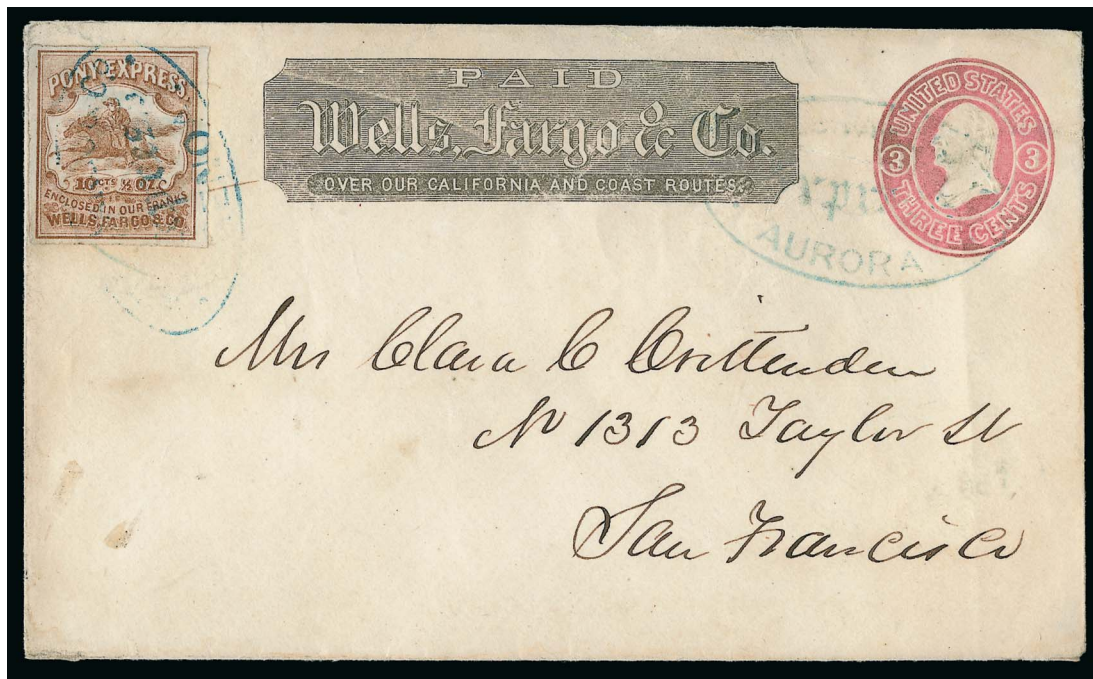 PONY EXPRESS.
10 CTS ½ OZ.
ENCLOSED IN OUR FRANKS
WELLS, FARGO & CO.
PAID
Wells, Fargo & Co.
OVER OUR CALIFORNIA AND COAST ROUTES.
UNITED STATES
3 3
THREE CENTS
AURORA
Mrs Clara C Crittenden
No 1313 Taylor St
San Francisco